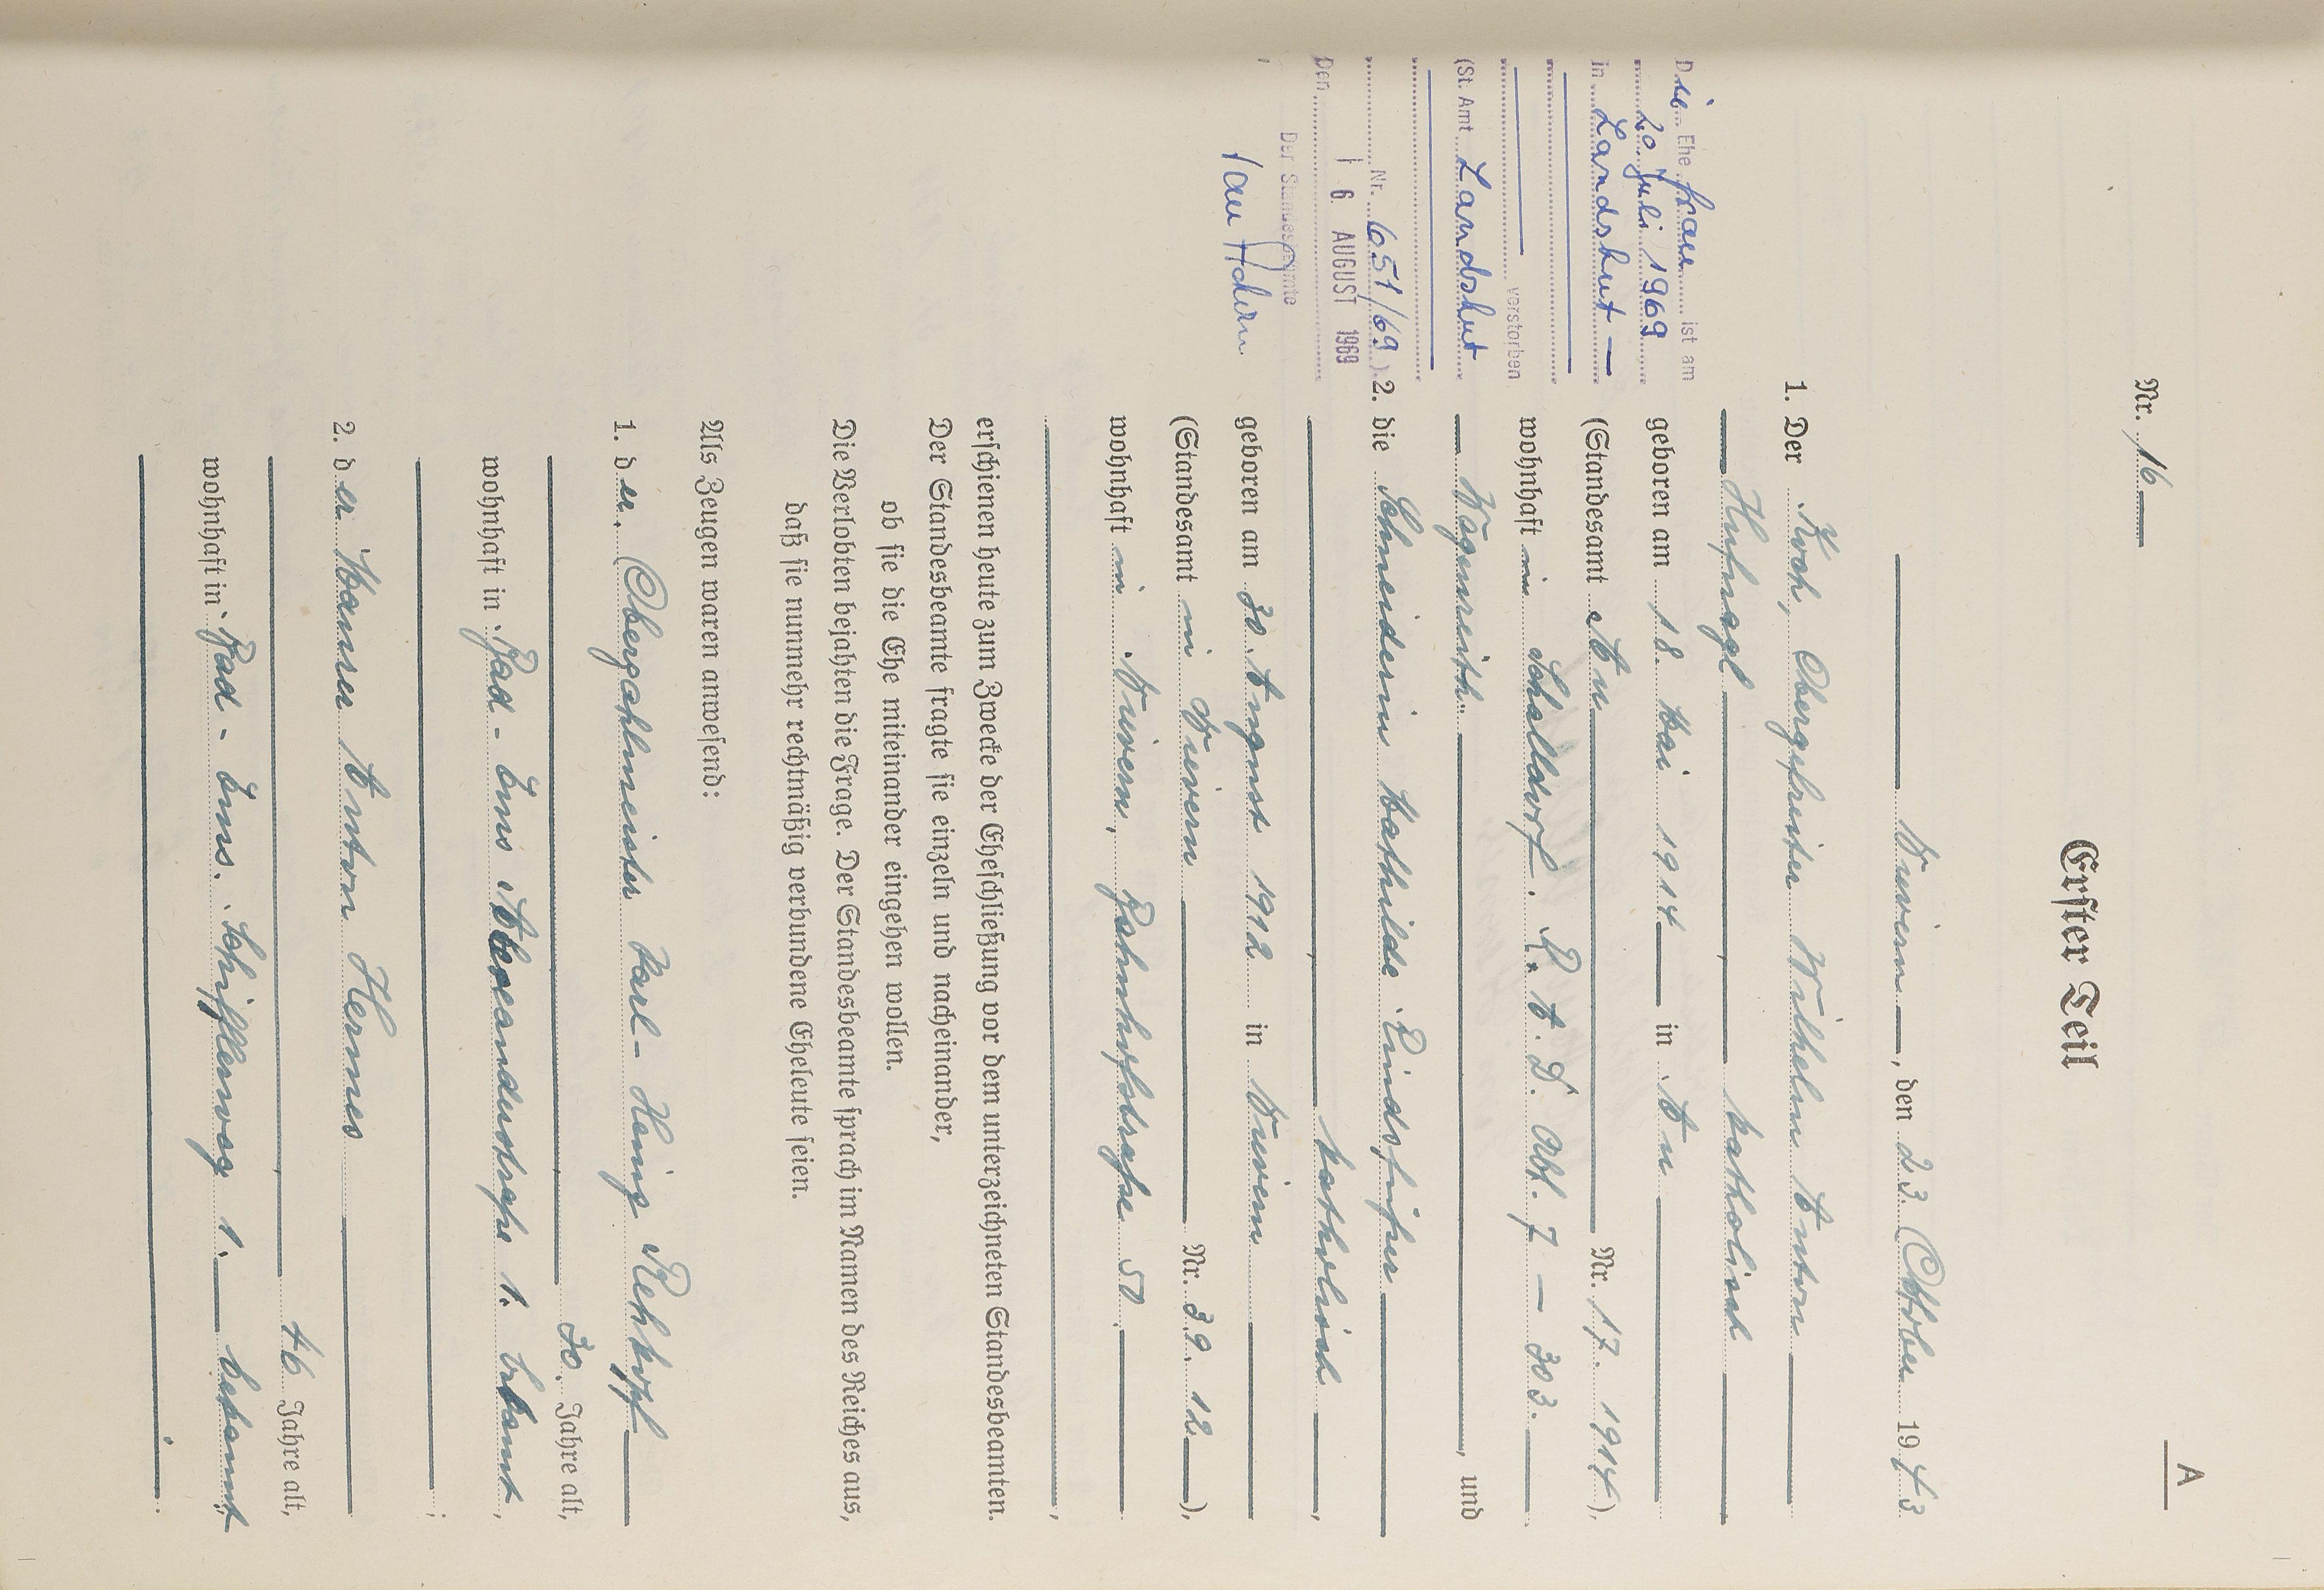 A
Nr. 16
Erster Teil
Nievern, den 23 Oktober 1943
1. Der Koch, Obergefreiter Wilhelm Anton
Hufnagl, katholisch
geboren am 18. Mai 1914 in Au
(Standesamt Au Nr. 17. 1914),
wohnhaft in Schalldorf. R. A. D. Abt. 7 – 303.
Wägenreith", und
2. die Schneiderin Mathilde
, katholisch,
geboren am 30. August 1912 in Nievern
(Standesamt in Nievern Nr. 39. 12),
wohnhaft in Nievern, Bahnhofstraße 50,
erschienen heute zum Zwecke der Eheschließung vor dem unterzeichneten Standesbeamten.
Der Standesbeamte fragte sie einzeln und nacheinander,
ob sie die Ehe miteinander eingehen wollen.
Die Verlobten bejahten die Frage. Der Standesbeamte sprach im Namen des Reiches aus,
daß sie nunmehr rechtmäßig verbundene Eheleute seien.
Als Zeugen waren anwesend:
1. der Oberzahlmeister Karl-Heinz Rehkopf
, 30. Jahre alt,
wohnhaft in Bad-Ems Alexanderstraße 1. bekannt,
;
2. der Maurer Anton Hermes
, 46 Jahre alt,
wohnhaft in Bad-Ems. 1. bekannt,
.
Die Ehefrau ist am
20 Juli 1969
in Landshut –
verstorben
(St. Amt Landshut
Nr. 651/69).
Den 6. AUGUST 1969
Der Standesbeamte